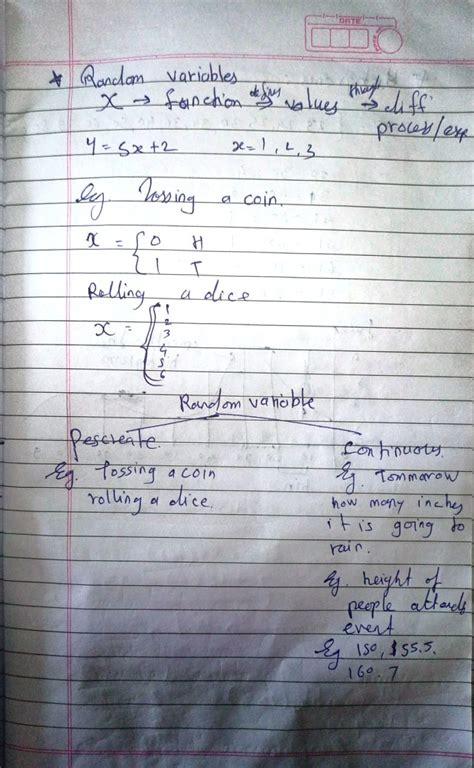 DATE
* Random variables
X → function defines → values through → diff
process/exp
y = 5x+2 x=1, 2, 3
eg. Tossing a coin.
x = { 0 H
1 T
Rolling a dice
x = { 1
2
3
4
5
6
Random variable
Descreate.
Eg. Tossing a coin
rolling a dice.
Continuous.
Eg. Tommarow
how many inches
it is going to
rain.
Eg. height of
people attends
event
Eg 150, 155.5.
160.7